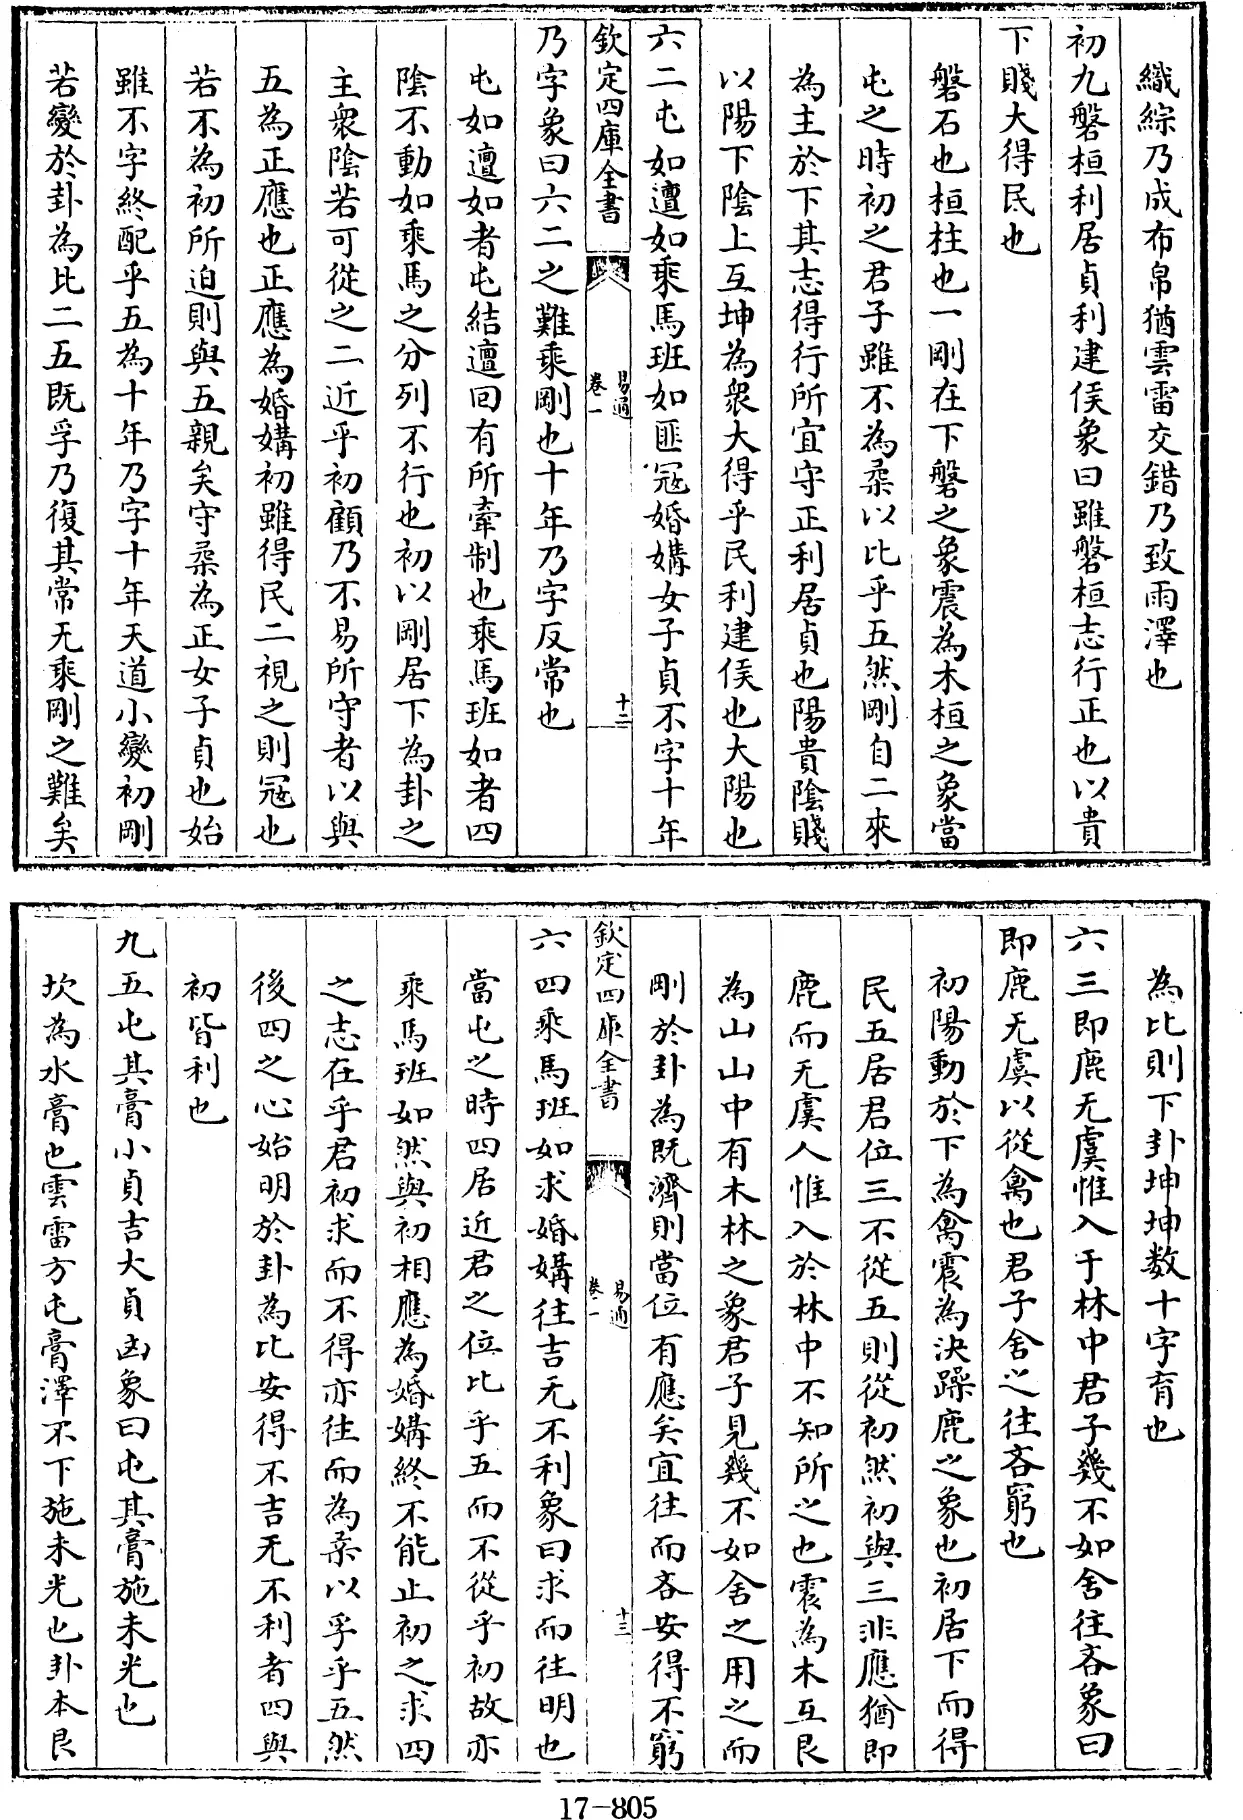 織綜乃成布帛猶雲雷交錯乃致雨澤也
初九磐桓利居貞利建侯象曰雖磐桓志行正也以貴
下賤大得民也
磐石也桓柱也一剛在下磐之象震為木桓之象當
屯之時初之君子雖不為柔以比乎五然剛自二來
為主於下其志得行所宜守正利居貞也陽貴陰賤
以陽下陰上互坤為衆大得乎民利建侯也大陽也
六二屯如邅如乘馬班如匪冦婚媾女子貞不字十年
欽定四庫全書
易通
卷一
十二
乃字象曰六二之難乘剛也十年乃字反常也
屯如邅如者屯結邅回有所牽制也乘馬班如者四
陰不動如乘馬之分列不行也初以剛居下為卦之
主衆陰若可從之二近乎初顧乃不易所守者以與
五為正應也正應為婚媾初雖得民二視之則冦也
若不為初所迫則與五親矣守柔為正女子貞也始
雖不字終配乎五為十年乃字十年天道小變初剛
若變於卦為比二五既孚乃復其常无乘剛之難矣
為比則下卦坤坤数十字育也
六三即鹿无虞惟入于林中君子幾不如舍往吝象曰
即鹿无虞以從禽也君子舍之往吝窮也
初陽動於下為禽震為決躁鹿之象也初居下而得
民五居君位三不從五則從初然初與三非應猶即
鹿而无虞人惟入於林中不知所之也震為木互艮
為山山中有木林之象君子見幾不如舍之用之而
剛於卦為既濟則當位有應矣宜往而吝安得不窮
欽定四庫全書
易通
卷一
十三
六四乘馬班如求婚媾往吉无不利象曰求而往明也
當屯之時四居近君之位比乎五而不從乎初故亦
乘馬班如然與初相應為婚媾終不能止初之求四
之志在乎君初求而不得亦往而為柔以孚乎五然
後四之心始明於卦為比安得不吉无不利者四與
初皆利也
九五屯其膏小貞吉大貞凶象曰屯其膏施未光也
坎為水膏也雲雷方屯膏澤不下施未光也卦本艮
17-805